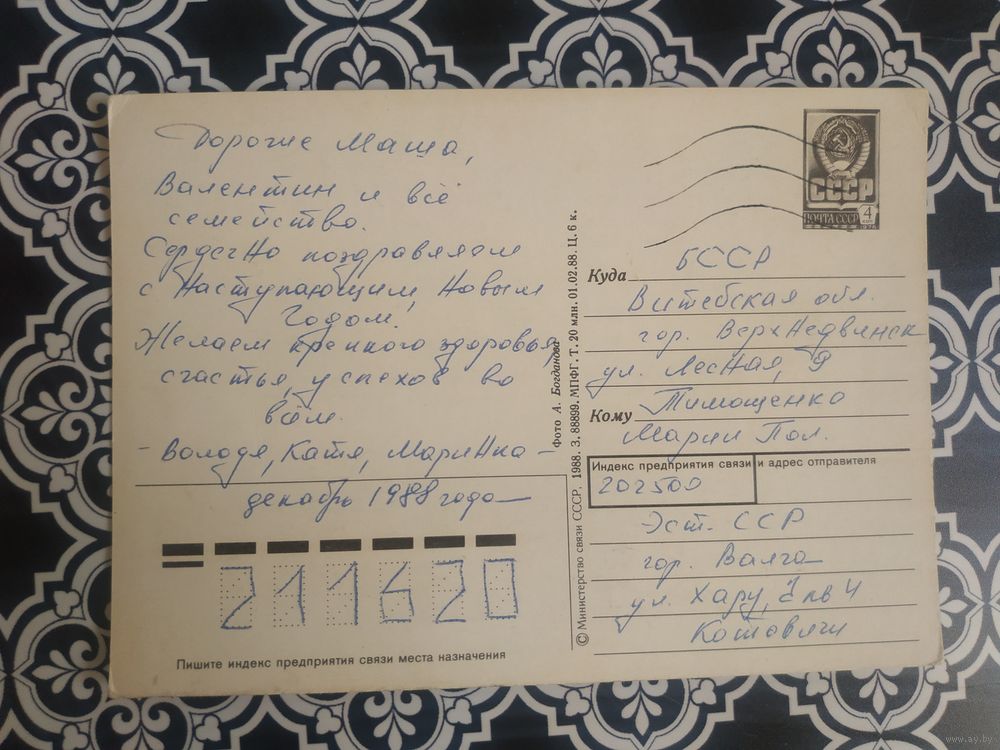 Дорогие Маша,
Валентин и всё
семейство.
Сердечно поздравляем
с Наступающим, Новым
Годом!
Желаем крепкого здоровья,
счастья, успехов во
всём.
- Володя, Катя, Маринка -
декабрь 1988 года
211620
Пишите индекс предприятия связи места назначения
Фото А. Богданова
© Министерство связи СССР, 1988. З. 88899. МПФГ. Т. 20 млн. 01.02.88. Ц. 6 к.
СССР
ПОЧТА СССР 4
Куда БССР
Витебская обл.
гор. Верхнедвинск
ул. Лесная, 9
Кому Тимощенко
Марии Пол.
Индекс предприятия связи и адрес отправителя
202500
Эст. ССР
гор. Валга
ул. Хару, кв 4
www.ay.by